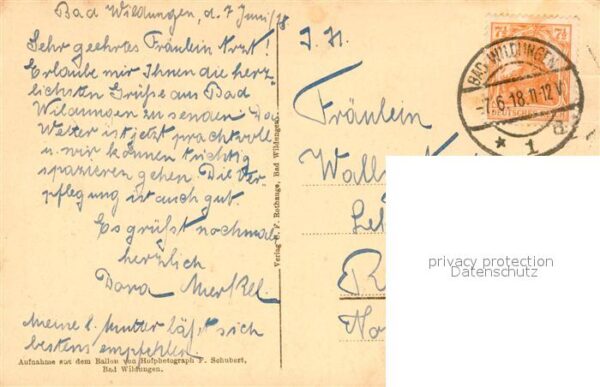 Bad Wildungen, d. 7 Juni/18.
Sehr geehrtes Fräulein Arzt!
Erlaube mir Ihnen die herz-
lichsten Grüße aus Bad
Wildungen zu senden. Das
Wetter ist jetzt prachtvoll
u. wir können tüchtig
spazieren gehen. Die Ver-
pflegung ist auch gut.
Es grüßt nochmal
herzlich
Dora Merkel.
Meine l. Mutter läßt sich
bestens empfehlen.
Aufnahme aus dem Ballon von Hofphotograph F. Schubert,
Bad Wildungen.
Verlag v. F. Rothauge, Bad Wildungen.
I. H.
Fräulein
7½ 7½
DEUTSCHES
BAD WILDUNGEN
-7.6.18.11-12V.
* 1 a
privacy protection
Datenschutz